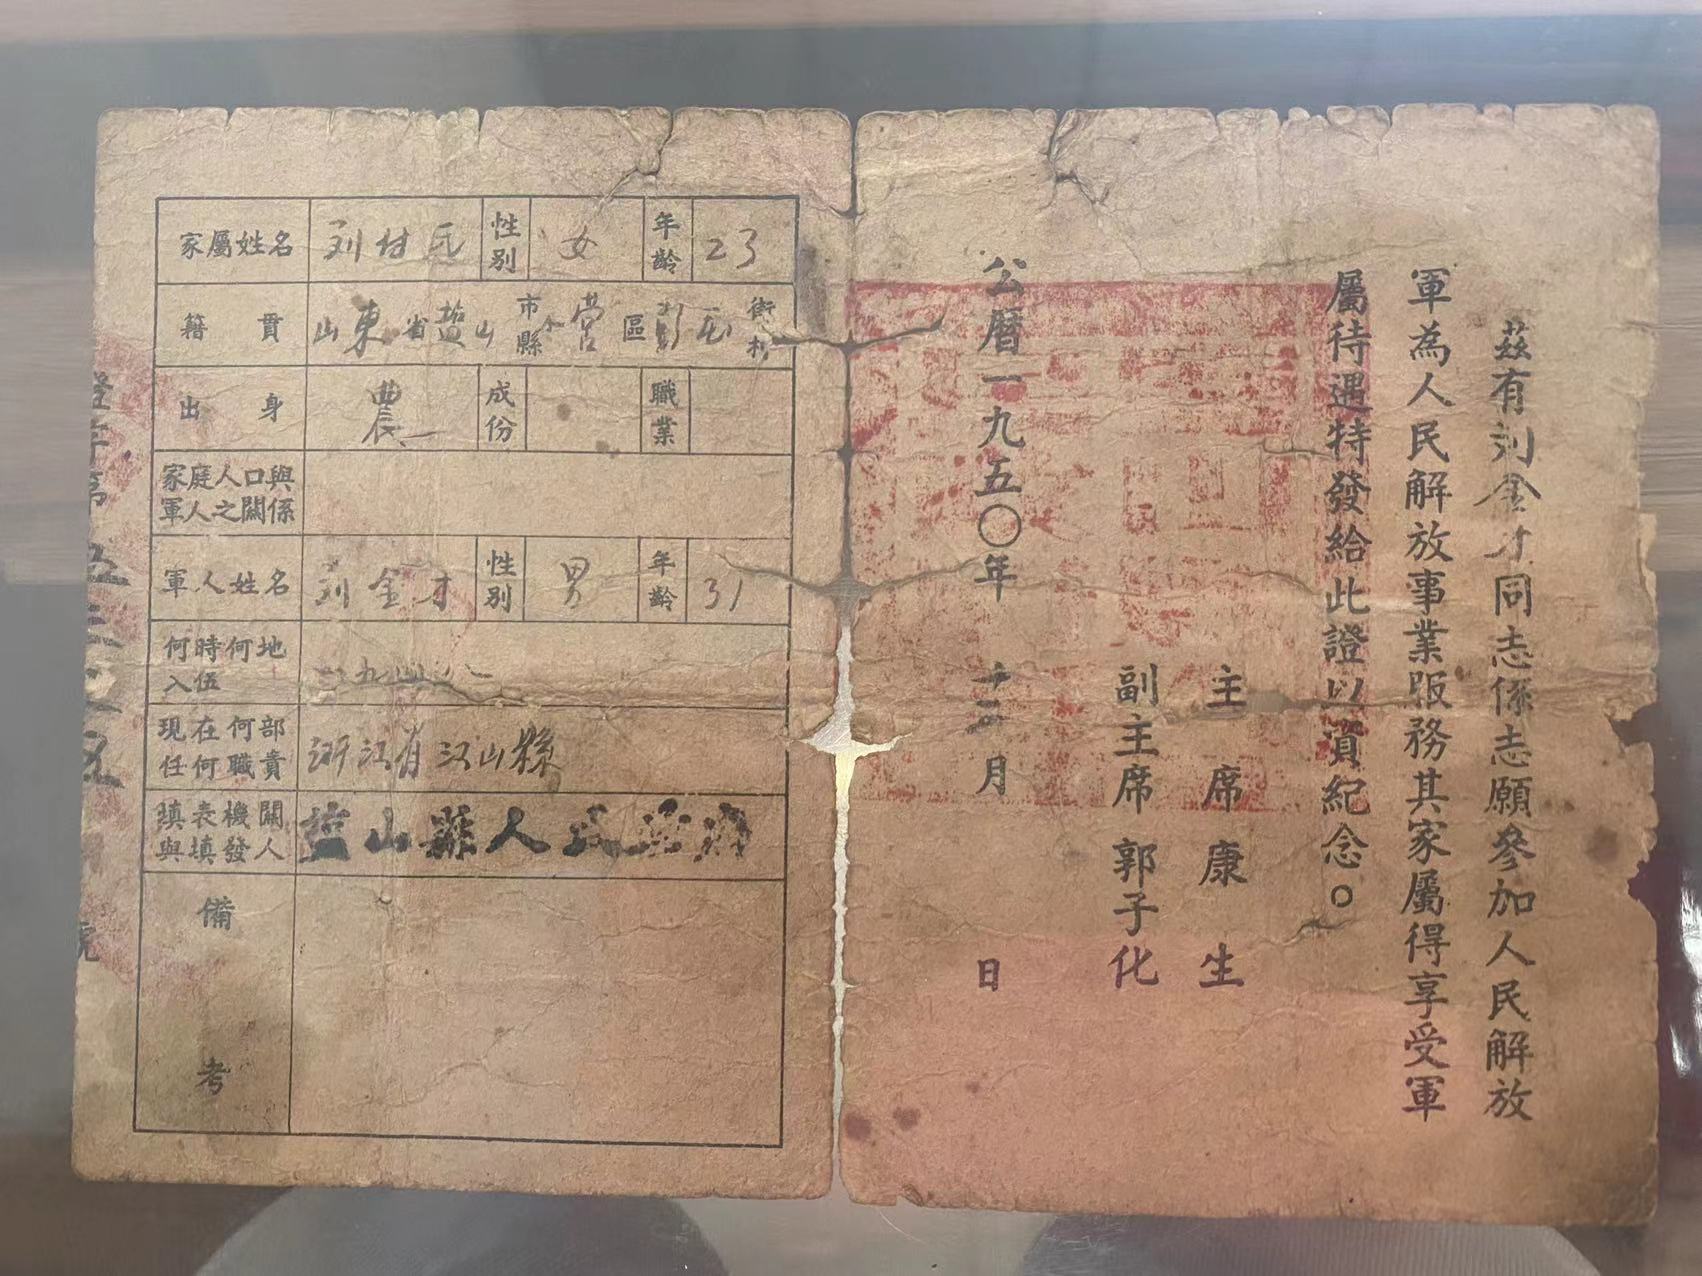 茲有刘金才同志係志願參加人民解放
軍為人民解放事業服務其家屬得享受軍
屬待遇特發給此證以資紀念。
主席 康生
副主席 郭子化
公曆一九五〇年十二月 日
家屬姓名 刘付氏 性別 女 年齡 23
籍貫 山東省鹽山市縣 營區 街村
出身 農 成份 職業
家庭人口與軍人之關係
軍人姓名 刘金才 性別 男 年齡 31
何時何地入伍 一九四八
現在何部任何職責 浙江省江山縣
填表機關與填發人 鹽山縣人民政府
備考
證字第 號